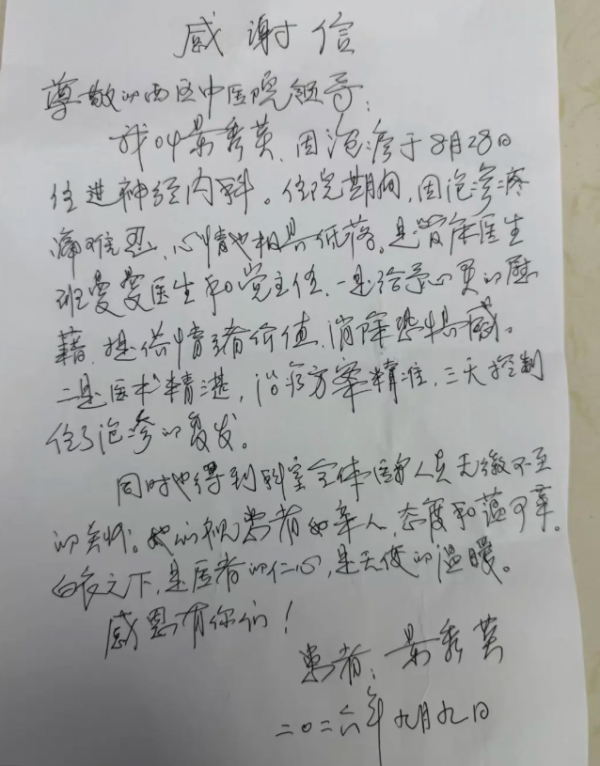 感谢信
尊敬的西区中医院领导:
我叫景秀英,因泡疹于8月28日
住进神经内科。住院期间,因泡疹疼
痛难忍,心情也相当低落。是管床医生
班曼曼医生和党主任,一是给予心灵的慰
藉,提供情绪价值,消除恐惧感。
二是医术精湛,治疗方案精准,三天控制
住了泡疹的复发。
同时也得到科室全体医护人员无微不至
的关怀。她们视患者如亲人,态度和蔼可亲。
白衣之下,是医者的仁心,是天使的温暖。
感恩有你们!
患者:景秀英
二〇二六年九月九日